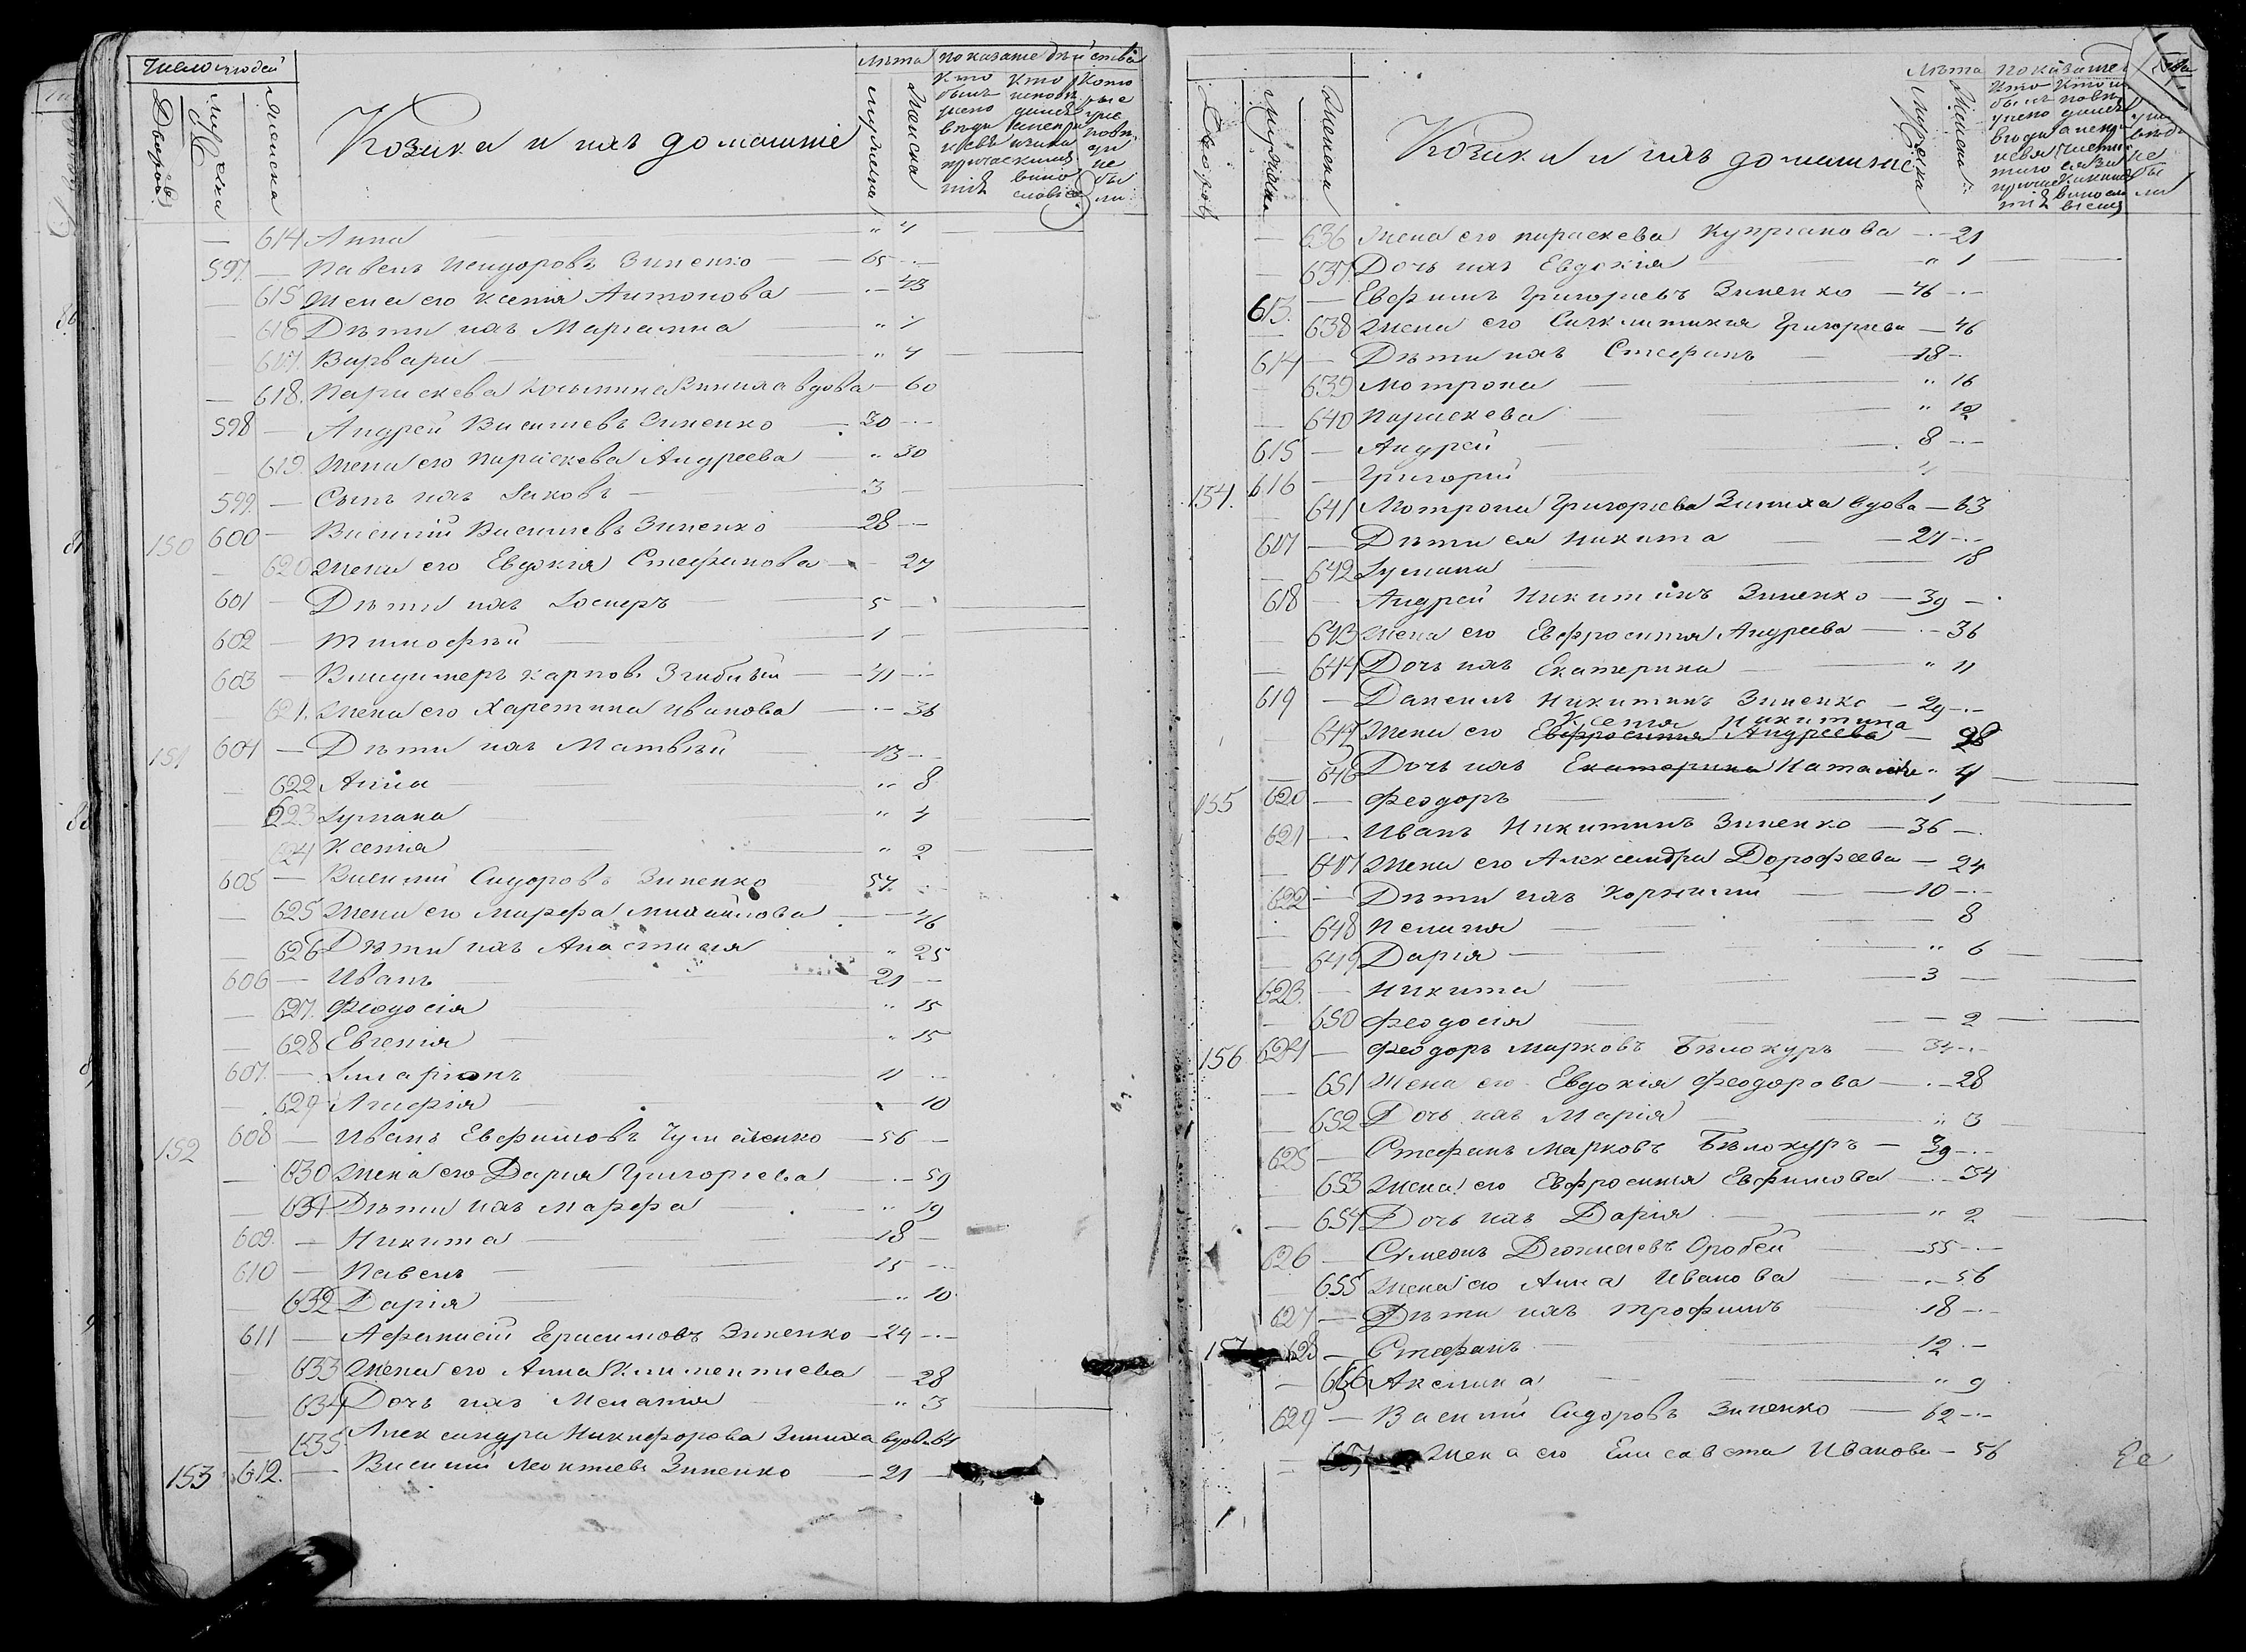 Число людей
Дворовъ
Мужеска
Женска
Козаки и ихъ домашніе
Лѣта
Мужеска
Женска
Показаніе дѣйства
614 Анна
597. Павелъ Исидоровъ Зиненко 65
615 Жена его Ксенія Антонова 43
616 Дѣти ихъ Маріанна
Варвара
618. Параскева Козьмина Зиниха вдова 60
598 Андрей Васильевъ Зиненко 30
619. Жена его Параскева Андреева 30
599. Сынъ ихъ Іаковъ 3
150 600 Василій Васильевъ Зиненко 28
620 Жена его Евдокія Стефанова 27
601 Дѣти ихъ Іосифъ 5
602 Тимофѣй 1
603 Владимеръ Карповъ
621. Жена его Харетина Иванова 36
151 604 Дѣти ихъ Матвѣй 13
622 Анна 8
623 Іуліана 4
624 Ксенія 2
605 Василій Сидоровъ Зиненко 57
625 Жена его Марфа Михайлова 46
626 Дѣти ихъ Анастасія 25
606 Иванъ 21
627. Феодосія 15
628 Евгенія 15
607. Іларіонъ 11
629 Агафія 10
152 608 Иванъ Евфимовъ 56
630 Жена его Дарія Григорьева 59
631. Дѣти ихъ Марфа 19
609. Никита 18
610 Павелъ 15
632 Дарія 10
611 Афанасій Герасимовъ Зиненко 24
633 Жена его Анна Климентиева 28
634 Дочь ихъ Меланія 3
635 Александра Никифорова Зиниха вдова 64
153 612. Василій Леонтіевъ Зиненко 21
Дворовъ
Мужеска
Женска
Козаки и ихъ домашніе
Лѣта
Мужеска
Женска
636 Жена его Параскева Купріанова 21
637 Дочь ихъ Евдокія 1
613. Евфимъ Григорьевъ Зиненко 46
638 Жена его Синклитикія Григорьева 46
614 Дѣти ихъ Стефанъ 18
639 Мотрона 16
640 Параскева
615 Андрей 8
154. 616 Григорій 4
641 Мотрона Григорьева Зиниха вдова 63
617 Дѣти ея Никита 27
642 Іуліана 18
618 Андрей Никитинъ Зиненко 39
643 Жена его Евфросинія Андреева 36
644 Дочь ихъ Екатерина 11
619 Даніилъ Никитинъ Зиненко 29
Ксенія Никитина
645 Жена его Евфросинія Андреева 28
646 Дочь ихъ Екатерина Наталія 4
155 620 Феодоръ 1
621 Иванъ Никитинъ Зиненко 36
647 Жена его Александра Дорофеева 24
622 Дѣти ихъ Корнилій 10
648 Пелагія 8
649 Дарія 6
623. Никита 3
650 Феодосія 2
156 624 Феодоръ Марковъ Бѣлокуръ 34
651 Жена его Евдокія Феодорова 28
652 Дочь ихъ Марія 3
625 Стефанъ Марковъ Бѣлокуръ 39
653 Жена его Евфросинія Евфимова 34
654 Дочь ихъ Дарія 2
626 Сѵмеонъ Діонисіевъ Оробей 55
655 Жена его Анна Иванова 56
627 Дѣти ихъ Трофимъ 18
157 628 Стефанъ 12
656 Акилина 9
629 Василій Сидоровъ Зиненко 62
657 Жена его Елисавета Иванова 56